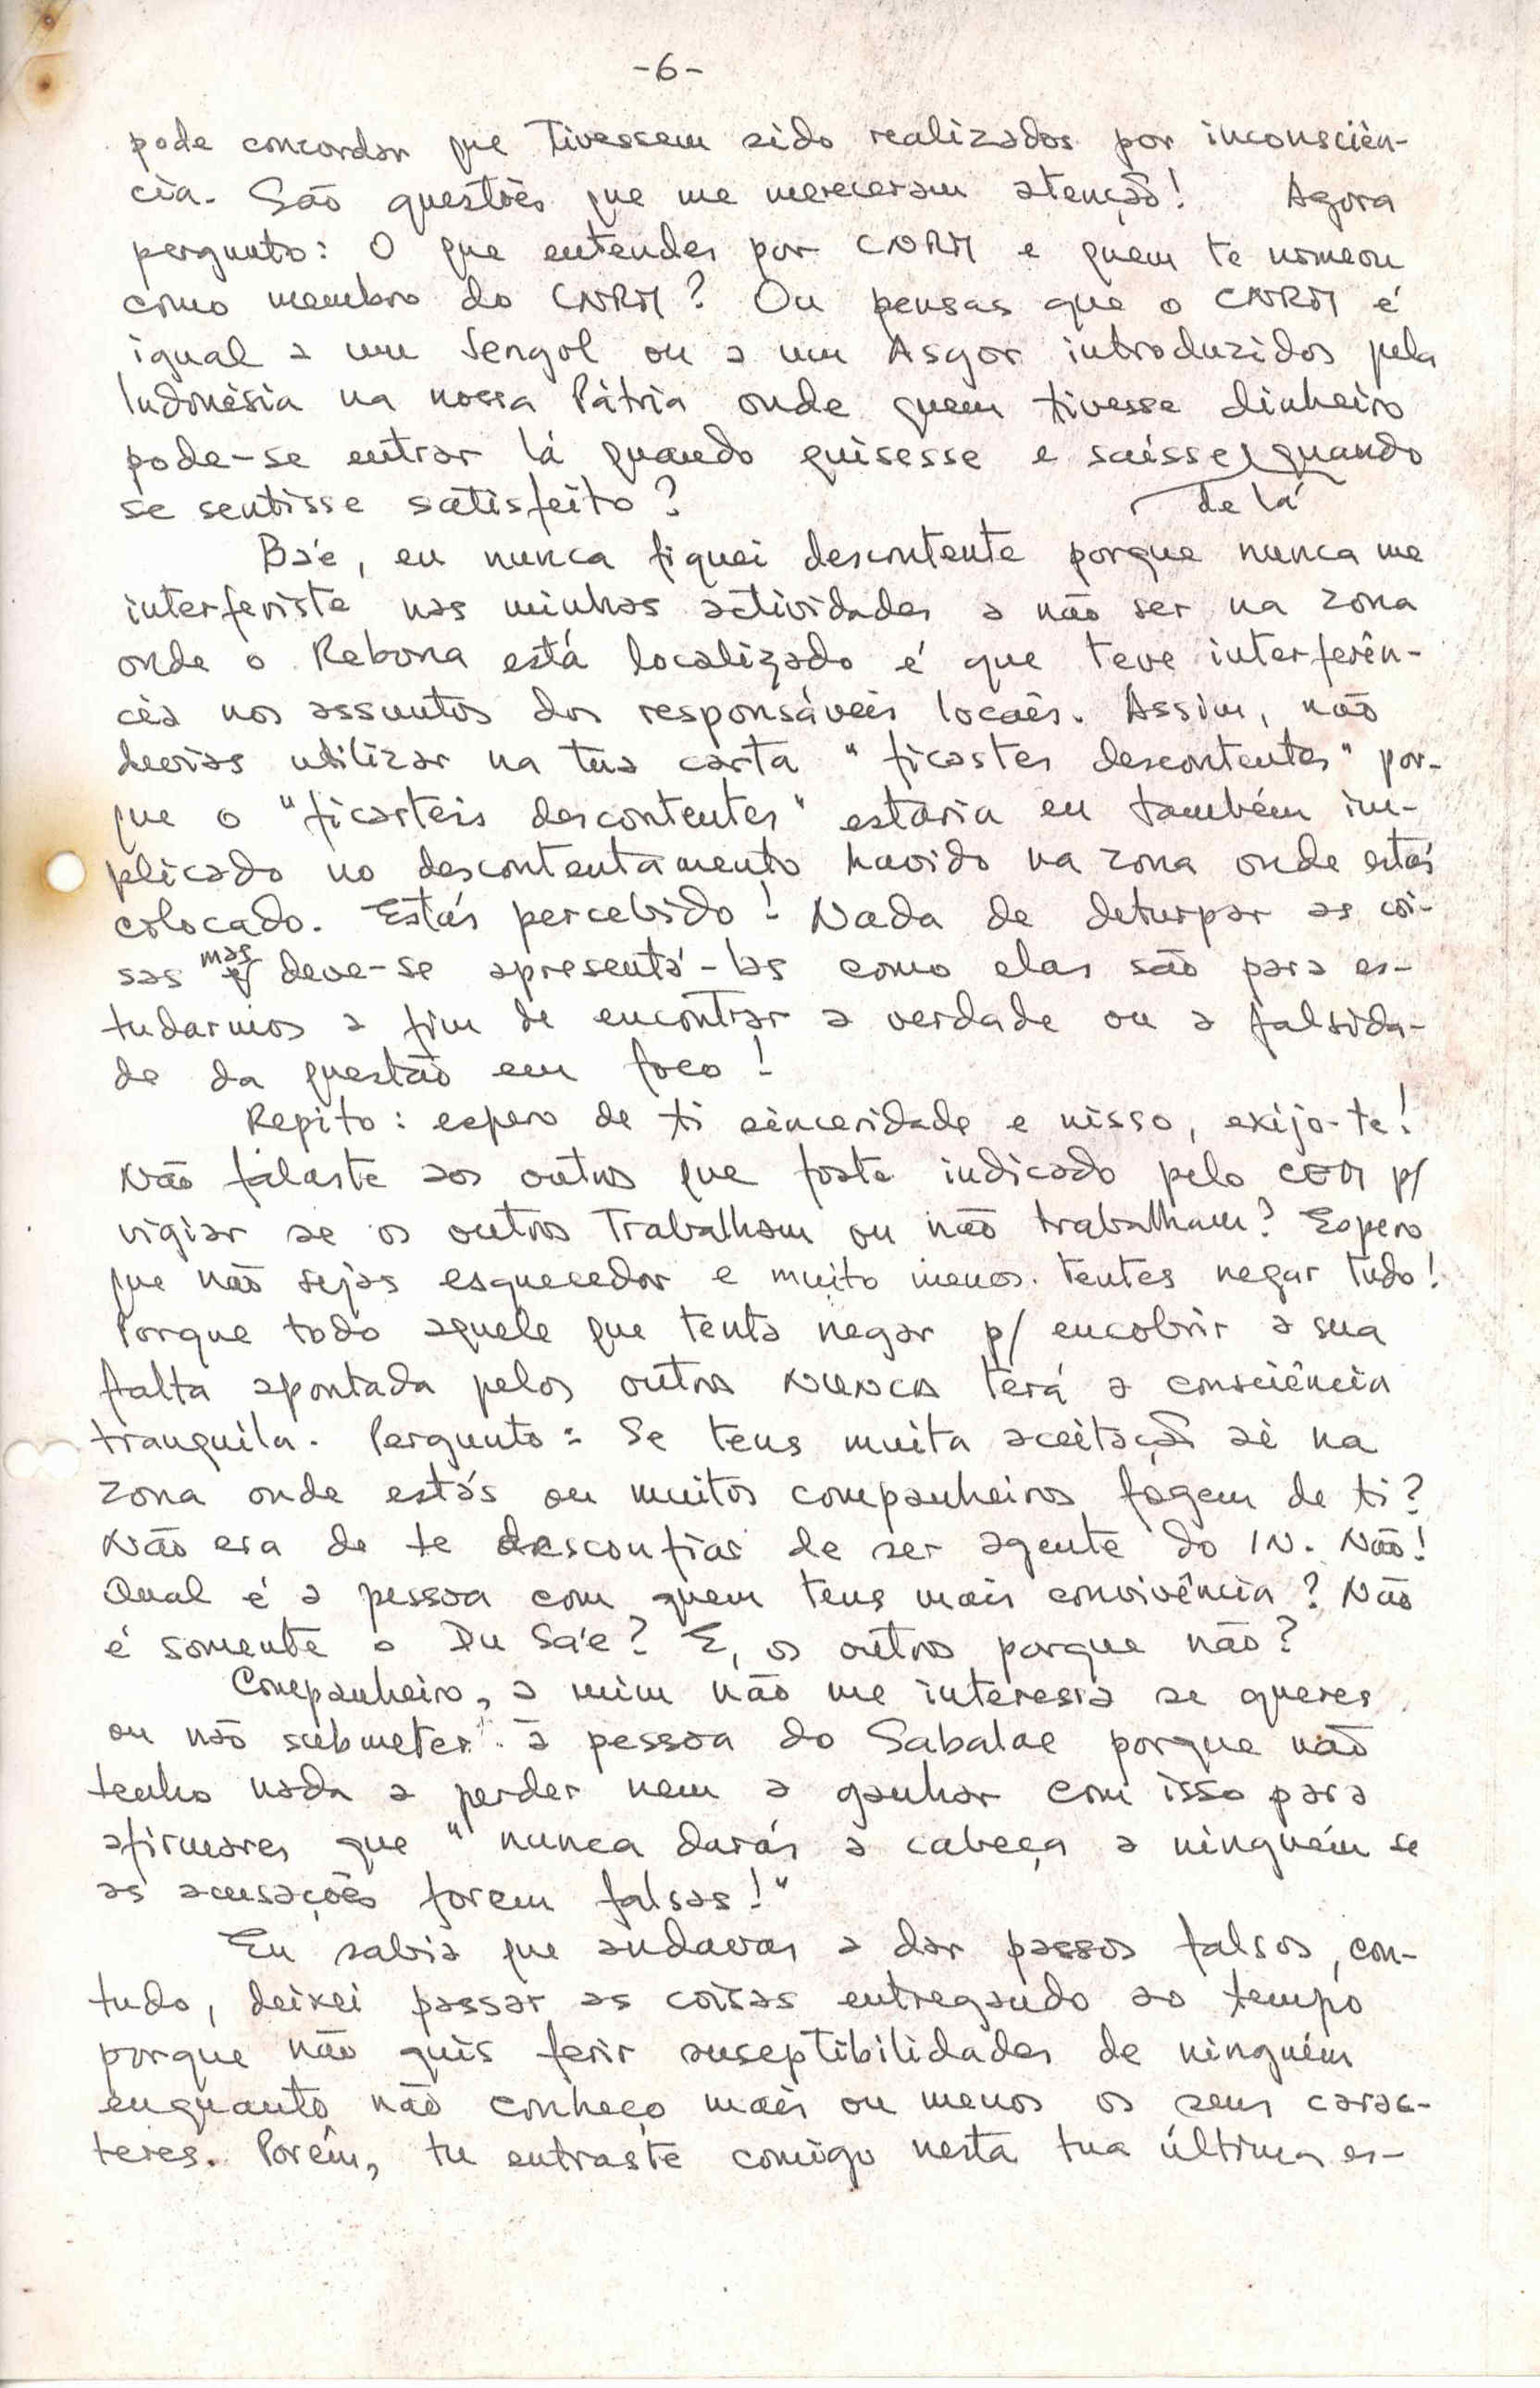 -6-
pode concordar que tivessem sido realizados por inconsciên-
cia. São questões que me mereceram atenção! Agora
pergunto: O que entendes por CNRM e quem te nomeou
como membro do CNRM? Ou pensas que o CNRM é
igual a um Sengol ou a um Asgor introduzidos pela
Indonésia na nossa Pátria onde quem tivesse dinheiro
pode-se entrar lá quando quisesse e saísse quando
se sentisse satisfeito? de lá
Ba'e, eu nunca fiquei descontente porque nunca me
interferiste nas minhas actividades a não ser na zona
onde o Rebona está localizado é que teve interferên-
cia nos assuntos dos responsáveis locais. Assim, não
devias utilizar na tua carta "ficastes descontentes" por-
que o "ficasteis descontentes" estaria eu também im-
plicado no descontentamento havido na zona onde estás
colocado. Estás percebido! Nada de deturpar as coi-
sas mas deve-se apresentá-las como elas são para es-
tudarmos a fim de encontrar a verdade ou a falsida-
de da questão em foco!
Repito: espero de ti sinceridade e nisso, exijo-te!
Não falaste aos outros que foste indicado pelo CEM p/
vigiar se os outros trabalham ou não trabalham? Espero
que não sejas esquecedor e muito menos tentes negar tudo!
Porque todo aquele que tenta negar p/ encobrir a sua
falta apontada pelos outros NUNCA terá a consciência
tranquila. Pergunto: Se tens muita aceitação aí na
zona onde estás ou muitos companheiros fogem de ti?
Não era de te desconfiar de ser agente do IN. Não!
Qual é a pessoa com quem tens mais convivência? Não
é somente o Du Sa'e? E, os outros porque não?
Companheiro, a mim não me interessa se queres
ou não submeter à pessoa do Sabalae porque não
tenho nada a perder nem a ganhar com isso para
afirmares que "nunca darás a cabeça a ninguém se
as acusações forem falsas!"
Eu sabia que andavas a dar passos falsos, con-
tudo, deixei passar as coisas entregando ao tempo
porque não quis ferir susceptibilidades de ninguém
enquanto não conheço mais ou menos os seus carac-
teres. Porém, tu entraste comigo nesta tua última es-